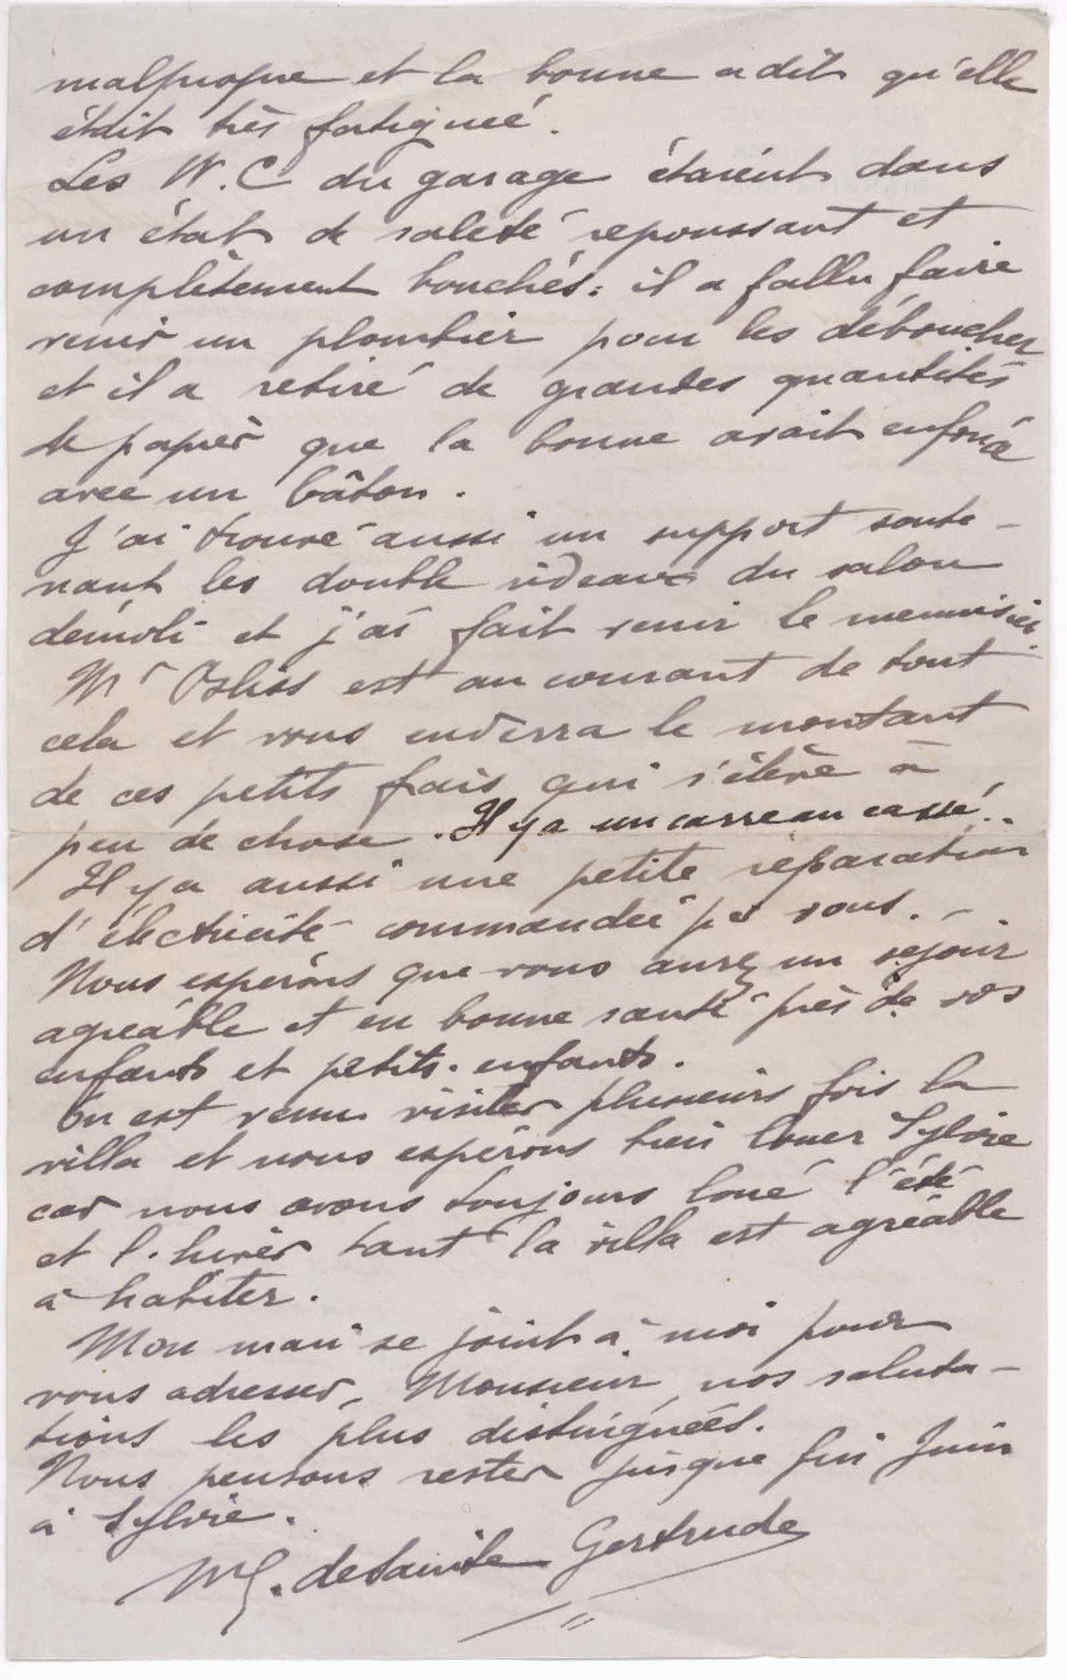 malpropre et la bonne a dit qu'elle
était très fatiguée.
Les W.C du garage étaient dans
un état de saleté repoussant et
complètement bouchés : il a fallu faire
venir un plombier pour les déboucher
et il a retiré de grandes quantités
de papier que la bonne avait enfoncé
avec un bâton.
J'ai trouvé aussi un support soute-
nant les double rideaux du salon
démoli et j'ai fait venir le menuisier.
Mr est au courant de tout
cela et vous enverra le montant
de ces petits frais qui s'élève à
peu de chose. Il y a un carreau cassé..
Il y a aussi une petite réparation
d'électricité commandée par vous. -.
Nous espérons que vous aurez un séjour
agréable et en bonne santé près de vos
enfants et petits-enfants.
On est venu visiter plusieurs fois la
villa et nous espérons bien louer Sylvie
car nous avons toujours loué l'été
et l'hiver tant la villa est agréable
à habiter.
Mon mari se joint à moi pour
vous adresser, Monsieur, nos saluta-
tions les plus distinguées.
Nous pensons rester jusque fin Juin
à Sylvie.
de Sainte Gertrude